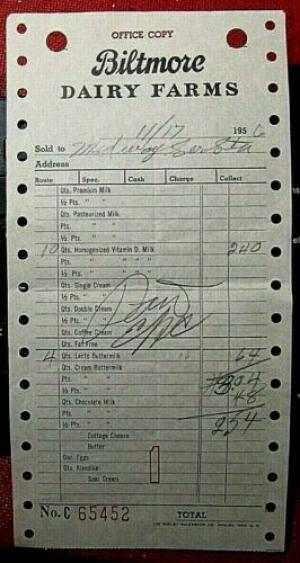 OFFICE COPY
Biltmore
DAIRY FARMS
11/17 1956
Sold to Midway Ser Sta
Address
Route Spec. Cash Charge Collect
Qts. Premium Milk
½ Pts. " "
Qts. Pasteurized Milk
½ Pts. " "
10 Qts. Homogenized Vitamin D. Milk 240
Pts. " " " "
½ Pts. " " " "
Qts. Single Cream
½ Pts. " "
Qts. Double Cream
½ Pts. " "
Qts. Coffee Cream
Qts. Fat Free
4 Qts. Lerts Buttermilk 16 64
Qts. Cream Buttermilk
Pts. " " 304
½ Pts. " " 48
Qts. Chocolate Milk
½ Pts. " " 254
Cottage Cheese
Butter
Doz. Eggs
Qts. Klondike
Sour Cream
No. C 65452 TOTAL